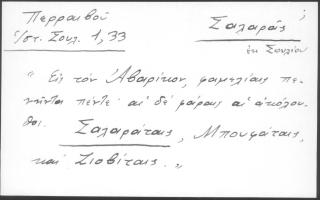 Περραιβού
Ἱ/στ. Σουλ. 1,33
Σαλαρᾶς ;
ἐκ Σουλίου
" Εἰς τὸν Ἀβαρῖκον, φαμελίαις πε-
νῆντα πέντε· αἱ δὲ φάραις αἱ ἀκόλου-
θοι. Σαλαράταις, Μπουφάταις,
καὶ Σιοβίταις. "